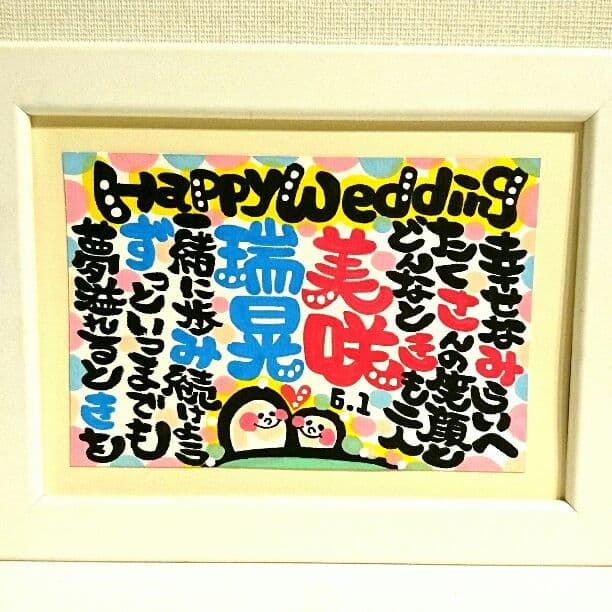 Happy Wedding
幸せなみらいへ
たくさんの笑顔と
どんなときも二人
美咲
瑞晃
一緒に歩み続けよう
ずっといつまでも
夢溢れるときを
6.1